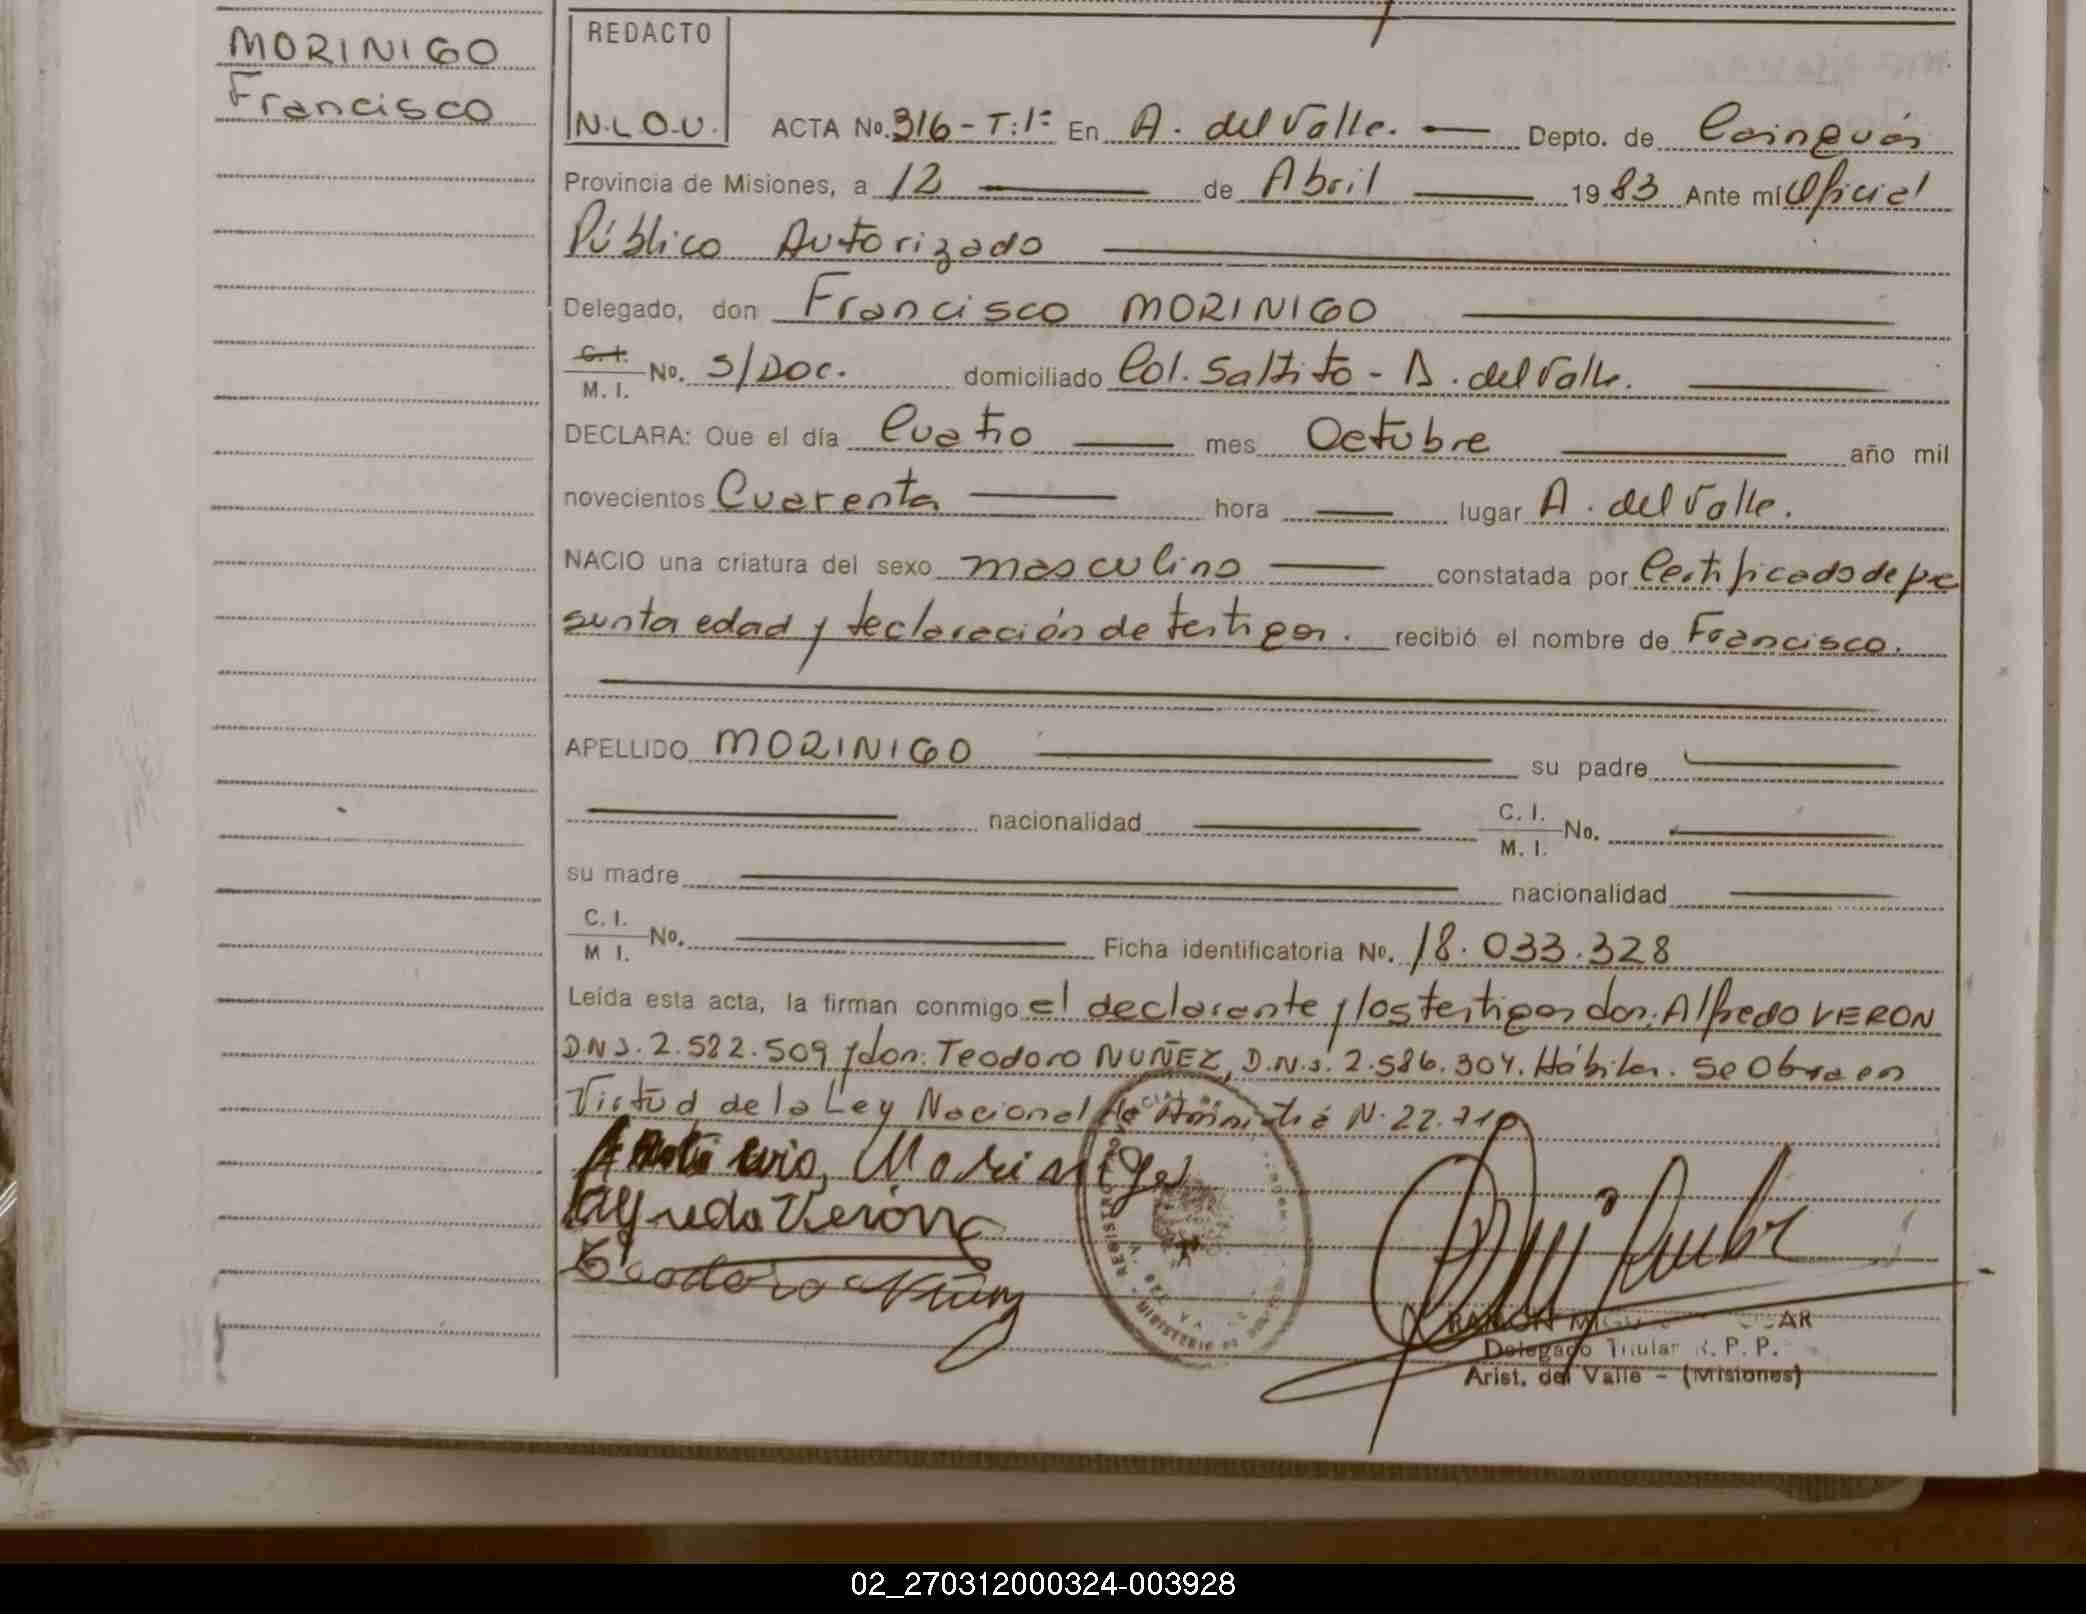 MORINIGO
Francisco
REDACTO
N.L.O.U.
ACTA No. 316 - T: 1º En A. del Valle. Depto. de Cainguás
Provincia de Misiones, a 12 de Abril 1983 Ante mí Oficial
Público Autorizado
Delegado, don Francisco MORINIGO
C. I. / M. I. No. S/Doc. domiciliado Col. Saltito - A. del Valle.
DECLARA: Que el día Cuatro mes Octubre año mil
novecientos Cuarenta hora lugar A. del Valle.
NACIO una criatura del sexo masculino constatada por Certificado de pre
sunta edad y declaración de testigos. recibió el nombre de Francisco.
APELLIDO MORINIGO su padre
nacionalidad C. I. / M. I. No.
su madre nacionalidad
C. I. / M I. No. Ficha identificatoria No. 18.033.328
Leída esta acta, la firman conmigo el declarante y los testigos don: Alfredo VERON
D.N.I. 2.582.509 y don: Teodoro NUÑEZ, D.N.I. 2.586.304. Hábiles. Se Obra en
Virtud de la Ley Nacional de Amnistía N. 22.710
Morinigo
Alfredo Verón
Teodoro Núñez
REGISTRO
MINISTERIO DE
RAMON
Delegado Titular R. P. P.
Arist. del Valle - (Misiones)
02_270312000324-003928